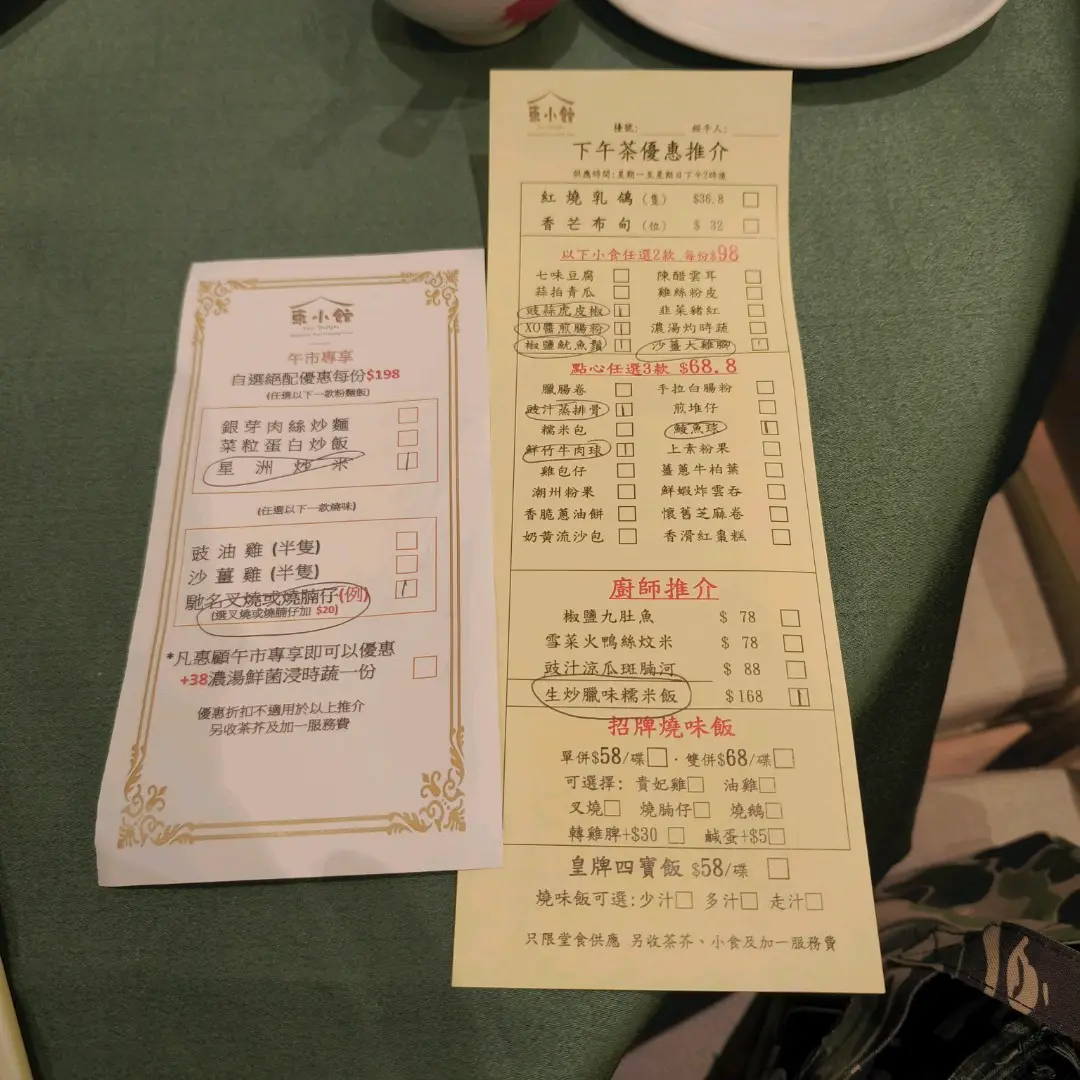 東小館
午市專享
自選絕配優惠每份$198
(任選以下一款粉麵飯)
銀芽肉絲炒麵
菜粒蛋白炒飯
星洲炒米
(任選以下一款燒味)
豉油雞 (半隻)
沙薑雞 (半隻)
馳名叉燒或燒腩仔(例)
(選叉燒或燒腩仔加 $20)
*凡惠顧午市專享即可以優惠
+38濃湯鮮菌浸時蔬一份
優惠折扣不適用於以上推介
另收茶芥及加一服務費
東小館
檯號: 經手人:
下午茶優惠推介
供應時間:星期一至星期日下午2時後
紅燒乳鴿(隻) $36.8
香芒布甸(位) $ 32
以下小食任選2款 每份$98
七味豆腐 陳醋雲耳
蒜拍青瓜 雞絲粉皮
豉蒜虎皮椒 韭菜豬紅
XO醬煎腸粉 濃湯灼時蔬
椒鹽魷魚鬚 沙薑大雞腳
點心任選3款 $68.8
臘腸卷 手拉白腸粉
豉汁蒸排骨 煎堆仔
糯米包 鯪魚球
鮮竹牛肉球 上素粉果
雞包仔 薑蔥牛柏葉
潮州粉果 鮮蝦炸雲吞
香脆蔥油餅 懷舊芝麻卷
奶黃流沙包 香滑紅棗糕
廚師推介
椒鹽九肚魚 $ 78
雪菜火鴨絲炆米 $ 78
豉汁涼瓜斑腩河 $ 88
生炒臘味糯米飯 $168
招牌燒味飯
單併$58/碟 · 雙併$68/碟
可選擇: 貴妃雞 油雞
叉燒 燒腩仔 燒鵝
轉雞脾+$30 鹹蛋+$5
皇牌四寶飯 $58/碟
燒味飯可選:少汁 多汁 走汁
只限堂食供應 另收茶芥、小食及加一服務費